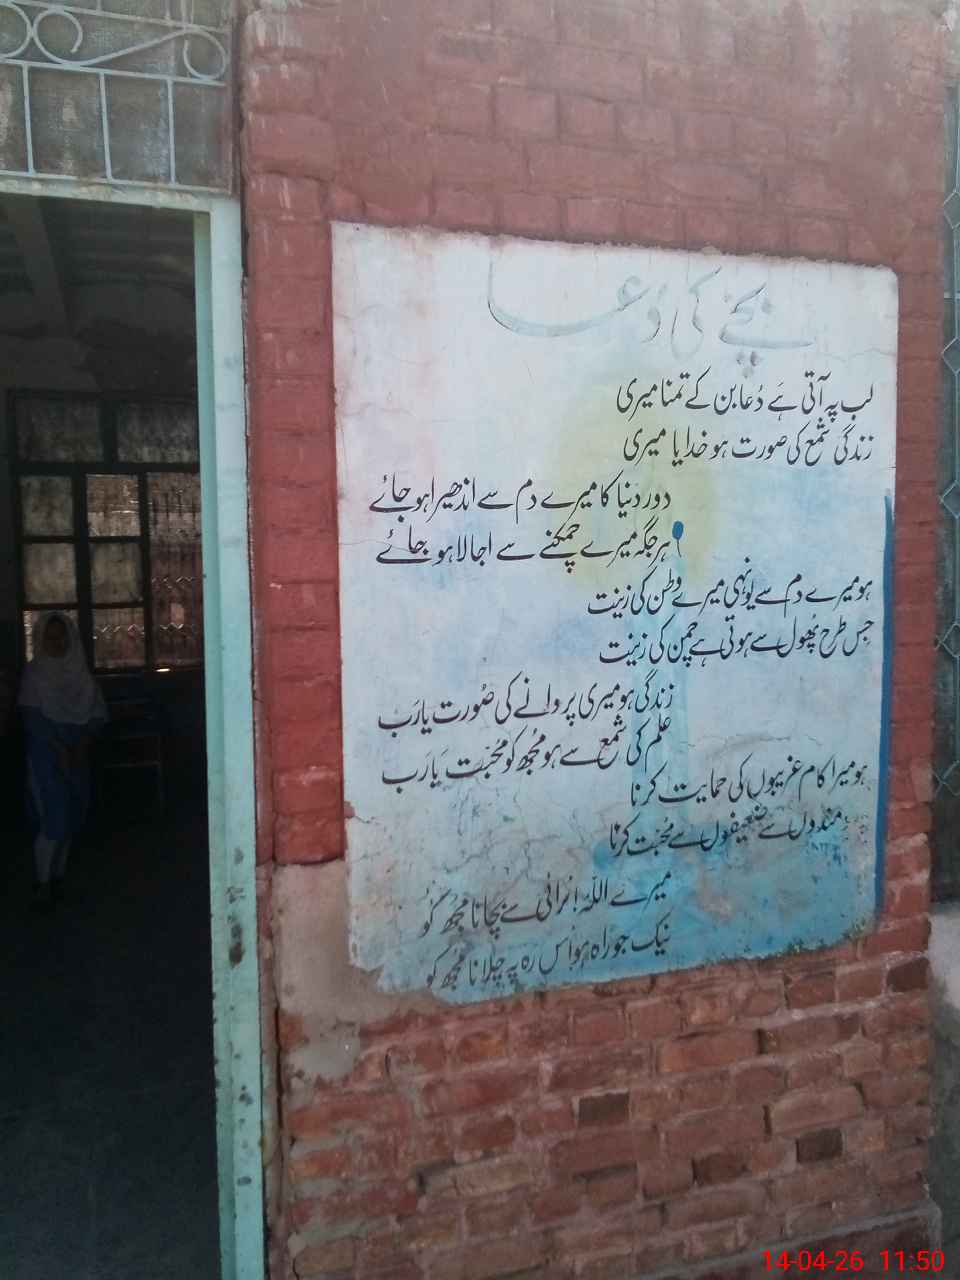 بچے کی دُعا
لب پہ آتی ہے دُعا بن کے تمنا میری
زندگی شمع کی صورت ہو خدایا میری
دور دنیا کا میرے دم سے اندھیرا ہو جائے
ہر جگہ میرے چمکنے سے اجالا ہو جائے
ہو میرے دم سے یونہی میرے وطن کی زینت
جس طرح پھُول سے ہوتی ہے چمن کی زینت
زندگی ہو میری پروانے کی صُورت یارَب
علم کی شمع سے ہو مُجھ کو محُبّت یَارَب
ہو میرا کام غریبوں کی حمایت کرنا
مندوں سے ضعیفوں سے محُبّت کرنا
میرے اللّٰہ! بُرائی سے بَچانا مُجھ کُو
نیک جو راہ ہو اُس رہ پہ چلانا مُجھ کو
14-04-26 11:50